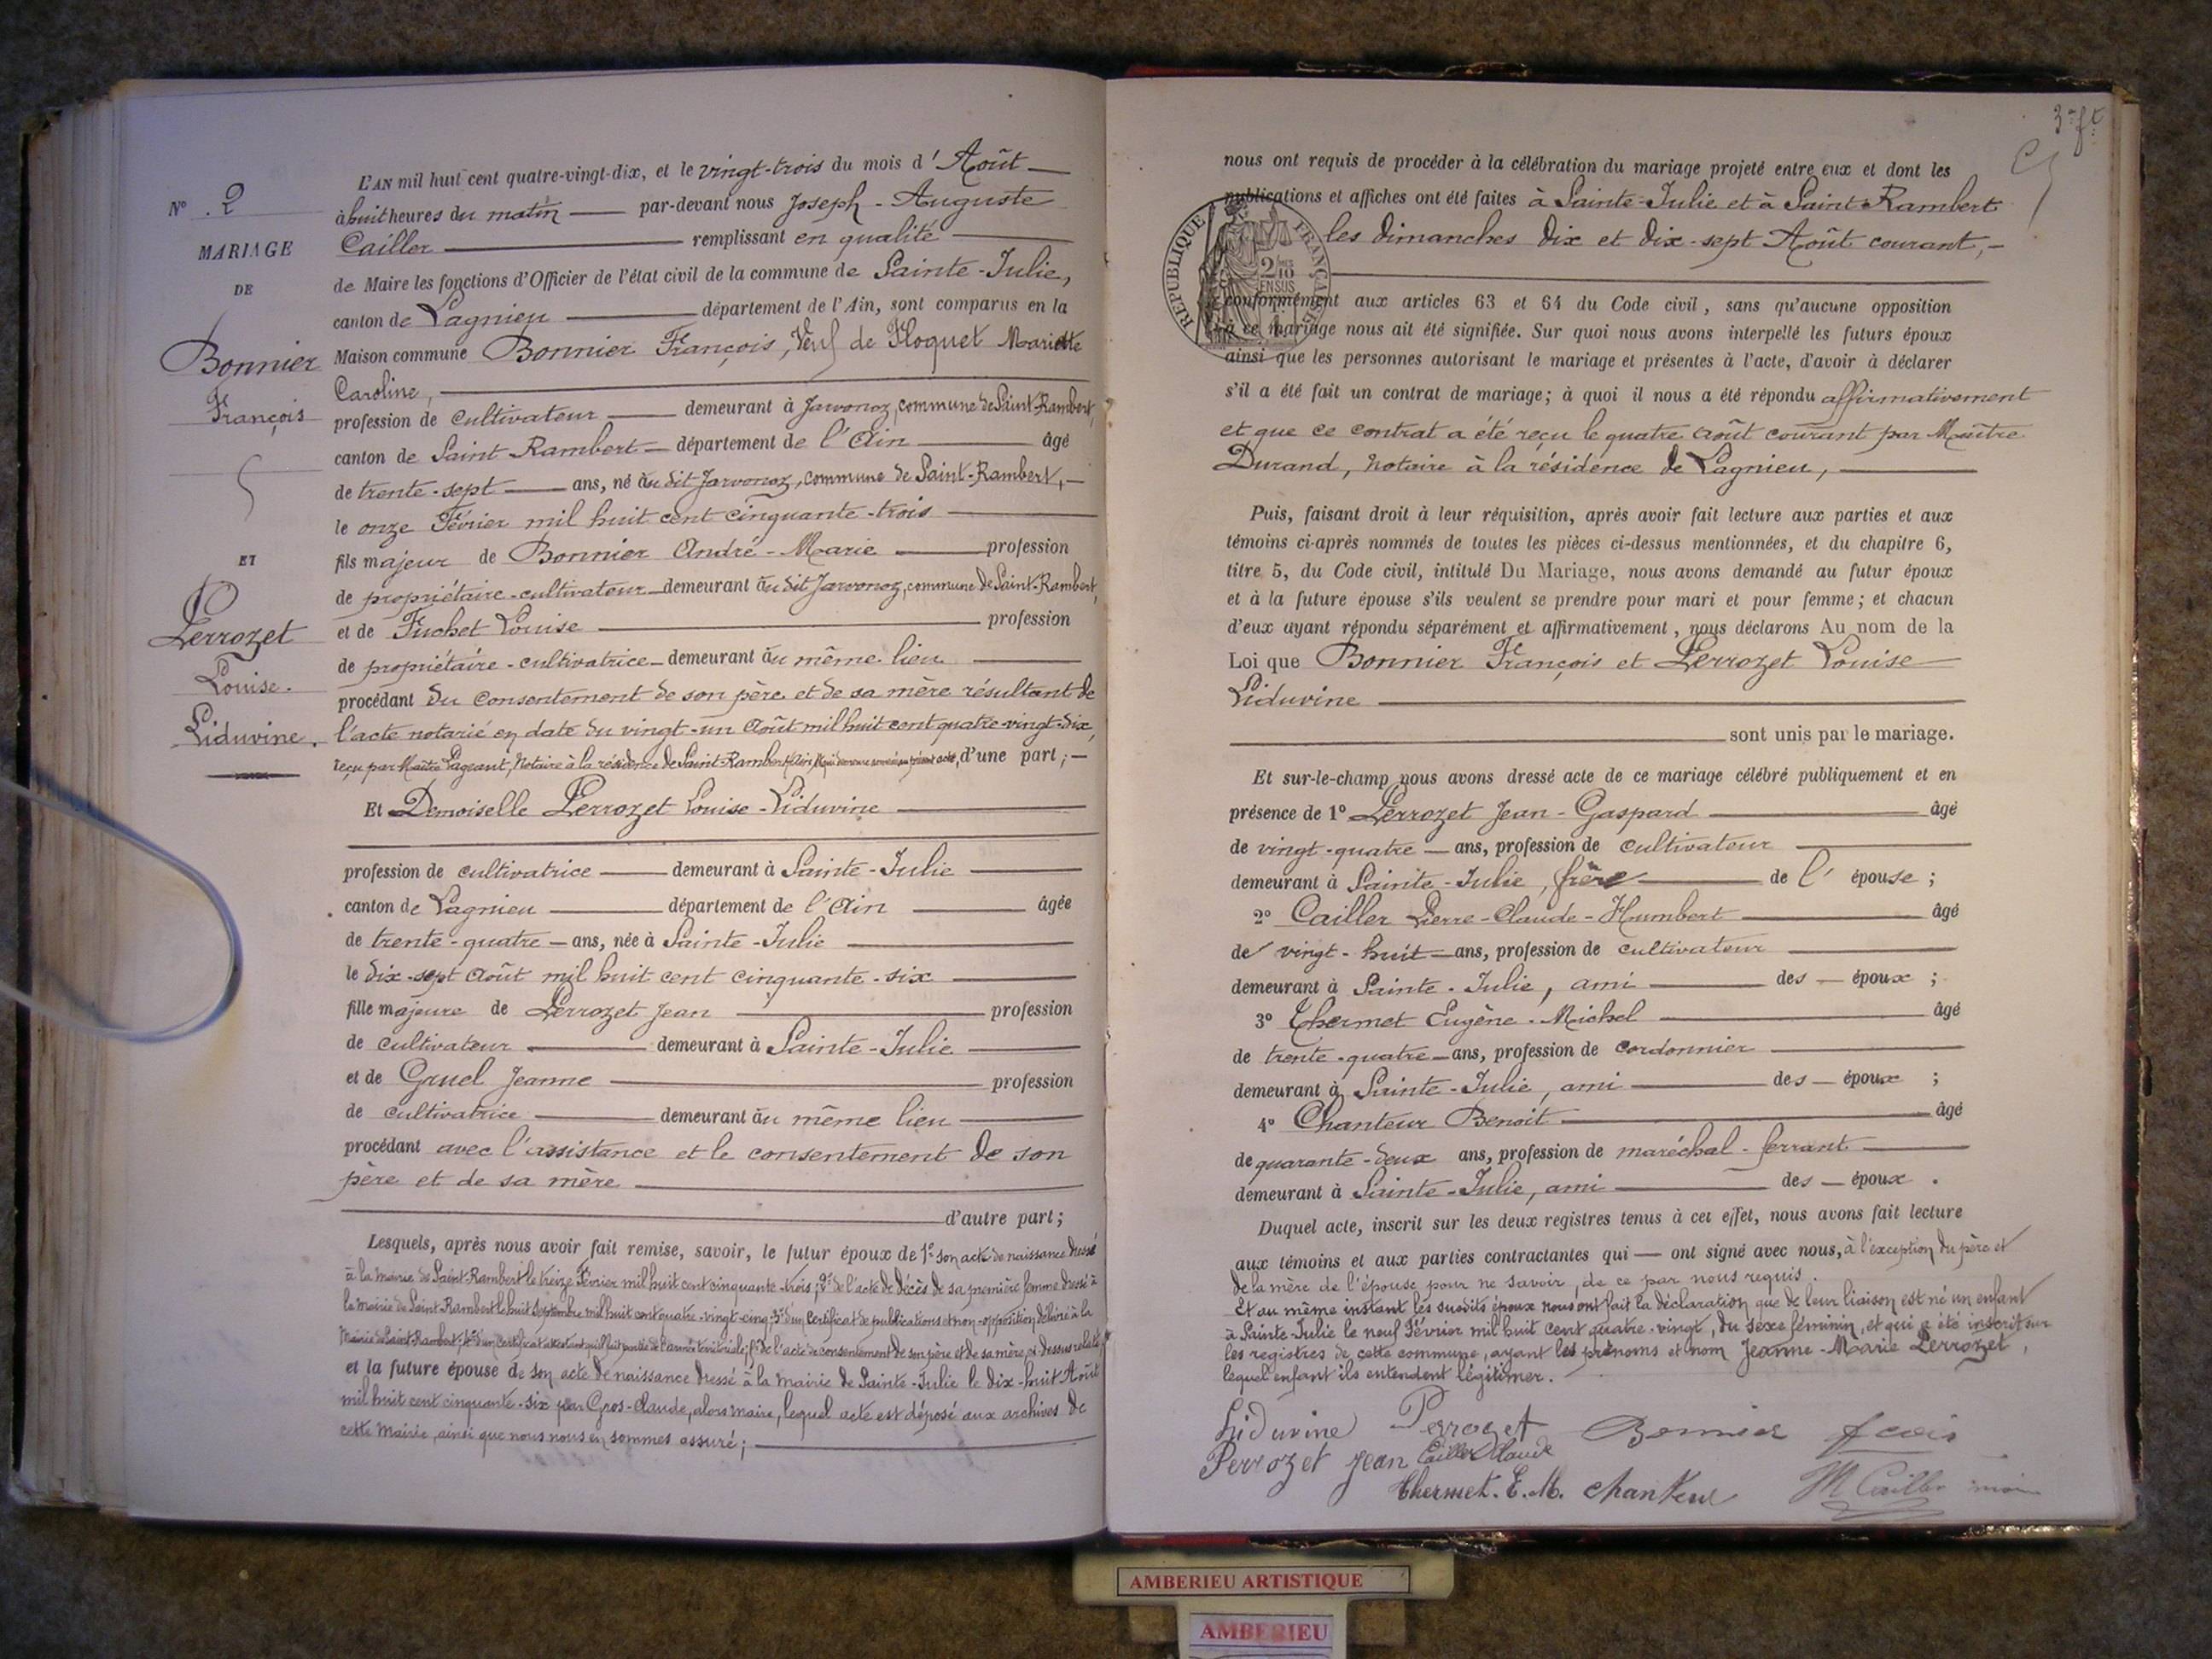 L'AN mil huit cent quatre-vingt-dix, et le vingt-trois du mois d'Août
N° 2
à huit heures du matin par-devant nous Joseph-Auguste
MARIAGE
Cailler remplissant en qualité
DE
de Maire les fonctions d'Officier de l'état civil de la commune de Sainte-Julie,
canton de Lagnieu département de l'Ain, sont comparus en la
Bonnier
Maison commune Bonnier François, Veuf de Floquet Mariette
Caroline,
François
profession de cultivateur demeurant à Javonoz, commune de Saint-Rambert,
canton de Saint-Rambert département de l'Ain âgé
de trente-sept ans, né au dit Javonoz, commune de Saint-Rambert,
le onze Février mil huit cent cinquante-trois
ET
fils majeur de Bonnier André-Marie profession
de propriétaire-cultivateur demeurant au dit Javonoz, commune de Saint-Rambert,
Perrozet
et de Fuchet Louise profession
de propriétaire-cultivatrice demeurant au même lieu
Louise.
procédant du consentement de son père et de sa mère résultant de
Liduvine.
l'acte notarié en date du vingt-un Août mil huit cent quatre-vingt-dix,
reçu par Maître Pageaut, Notaire à la résidence de Saint-Rambert qui demeure annexé au présent acte, d'une part;
Et Demoiselle Perrozet Louise-Liduvine
profession de cultivatrice demeurant à Sainte-Julie
canton de Lagnieu département de l'Ain âgée
de trente-quatre ans, née à Sainte-Julie
le dix-sept Août mil huit cent cinquante-six
fille majeure de Perrozet Jean profession
de cultivateur demeurant à Sainte-Julie
et de Gruel Jeanne profession
de cultivatrice demeurant au même lieu
procédant avec l'assistance et le consentement de son
père et de sa mère
d'autre part;
Lesquels, après nous avoir fait remise, savoir, le futur époux de 1° son acte de naissance dressé
à la Mairie de Saint-Rambert le treize Février mil huit cent cinquante-trois; 2° de l'acte de décès de sa première femme dressé à
la Mairie de Saint-Rambert le huit Septembre mil huit cent quatre-vingt-cinq; 3° d'un certificat de publications et non-opposition délivré à la
Mairie de Saint-Rambert; 4° d'un certificat attestant qu'il fait partie de l'armée territoriale; 5° de l'acte de consentement de son père et de sa mère, ci-dessus relaté
et la future épouse de son acte de naissance dressé à la Mairie de Sainte-Julie le dix-huit Août
mil huit cent cinquante-six par Gros-Claude, alors maire, lequel acte est déposé aux archives de
cette Mairie, ainsi que nous nous en sommes assuré;
3 ft
nous ont requis de procéder à la célébration du mariage projeté entre eux et dont les
publications et affiches ont été faites à Sainte-Julie et à Saint-Rambert
les dimanches dix et dix-sept Août courant,
RÉPUBLIQUE FRANÇAISE
conformément aux articles 63 et 64 du Code civil, sans qu'aucune opposition
à ce mariage nous ait été signifiée. Sur quoi nous avons interpellé les futurs époux
ainsi que les personnes autorisant le mariage et présentes à l'acte, d'avoir à déclarer
s'il a été fait un contrat de mariage; à quoi il nous a été répondu affirmativement
et que ce contrat a été reçu le quatre Août courant par Maître
Durand, Notaire à la résidence de Lagnieu,
Puis, faisant droit à leur réquisition, après avoir fait lecture aux parties et aux
témoins ci-après nommés de toutes les pièces ci-dessus mentionnées, et du chapitre 6,
titre 5, du Code civil, intitulé Du Mariage, nous avons demandé au futur époux
et à la future épouse s'ils veulent se prendre pour mari et pour femme; et chacun
d'eux ayant répondu séparément et affirmativement, nous déclarons Au nom de la
Loi que Bonnier François et Perrozet Louise
Liduvine
sont unis par le mariage.
Et sur-le-champ nous avons dressé acte de ce mariage célébré publiquement et en
présence de 1° Perrozet Jean-Gaspard âgé
de vingt-quatre ans, profession de cultivateur
demeurant à Sainte-Julie, frère de l'épouse;
2° Cailler Pierre-Claude-Humbert âgé
de vingt-huit ans, profession de cultivateur
demeurant à Sainte-Julie, ami des époux;
3° Thermet Eugène-Michel âgé
de trente-quatre ans, profession de cordonnier
demeurant à Sainte-Julie, ami des époux;
4° Chanteur Benoit âgé
de quarante-deux ans, profession de maréchal-ferrant
demeurant à Sainte-Julie, ami des époux.
Duquel acte, inscrit sur les deux registres tenus à cet effet, nous avons fait lecture
aux témoins et aux parties contractantes qui ont signé avec nous, à l'exception du père et
de la mère de l'épouse pour ne savoir, de ce par nous requis.
Et au même instant les susdits époux nous ont fait la déclaration que de leur liaison est né un enfant
à Sainte-Julie le neuf Février mil huit cent quatre-vingt, du sexe féminin, et qui a été inscrit sur
les registres de cette commune, ayant les prénoms et nom Jeanne-Marie Perrozet,
lequel enfant ils entendent légitimer.
Liduvine Perrozet Bonnier fcois
Perrozet Jean Cailler Claude
Thermet. E. M. Chanteur M Cailler
AMBERIEU ARTISTIQUE
AMBERIEU